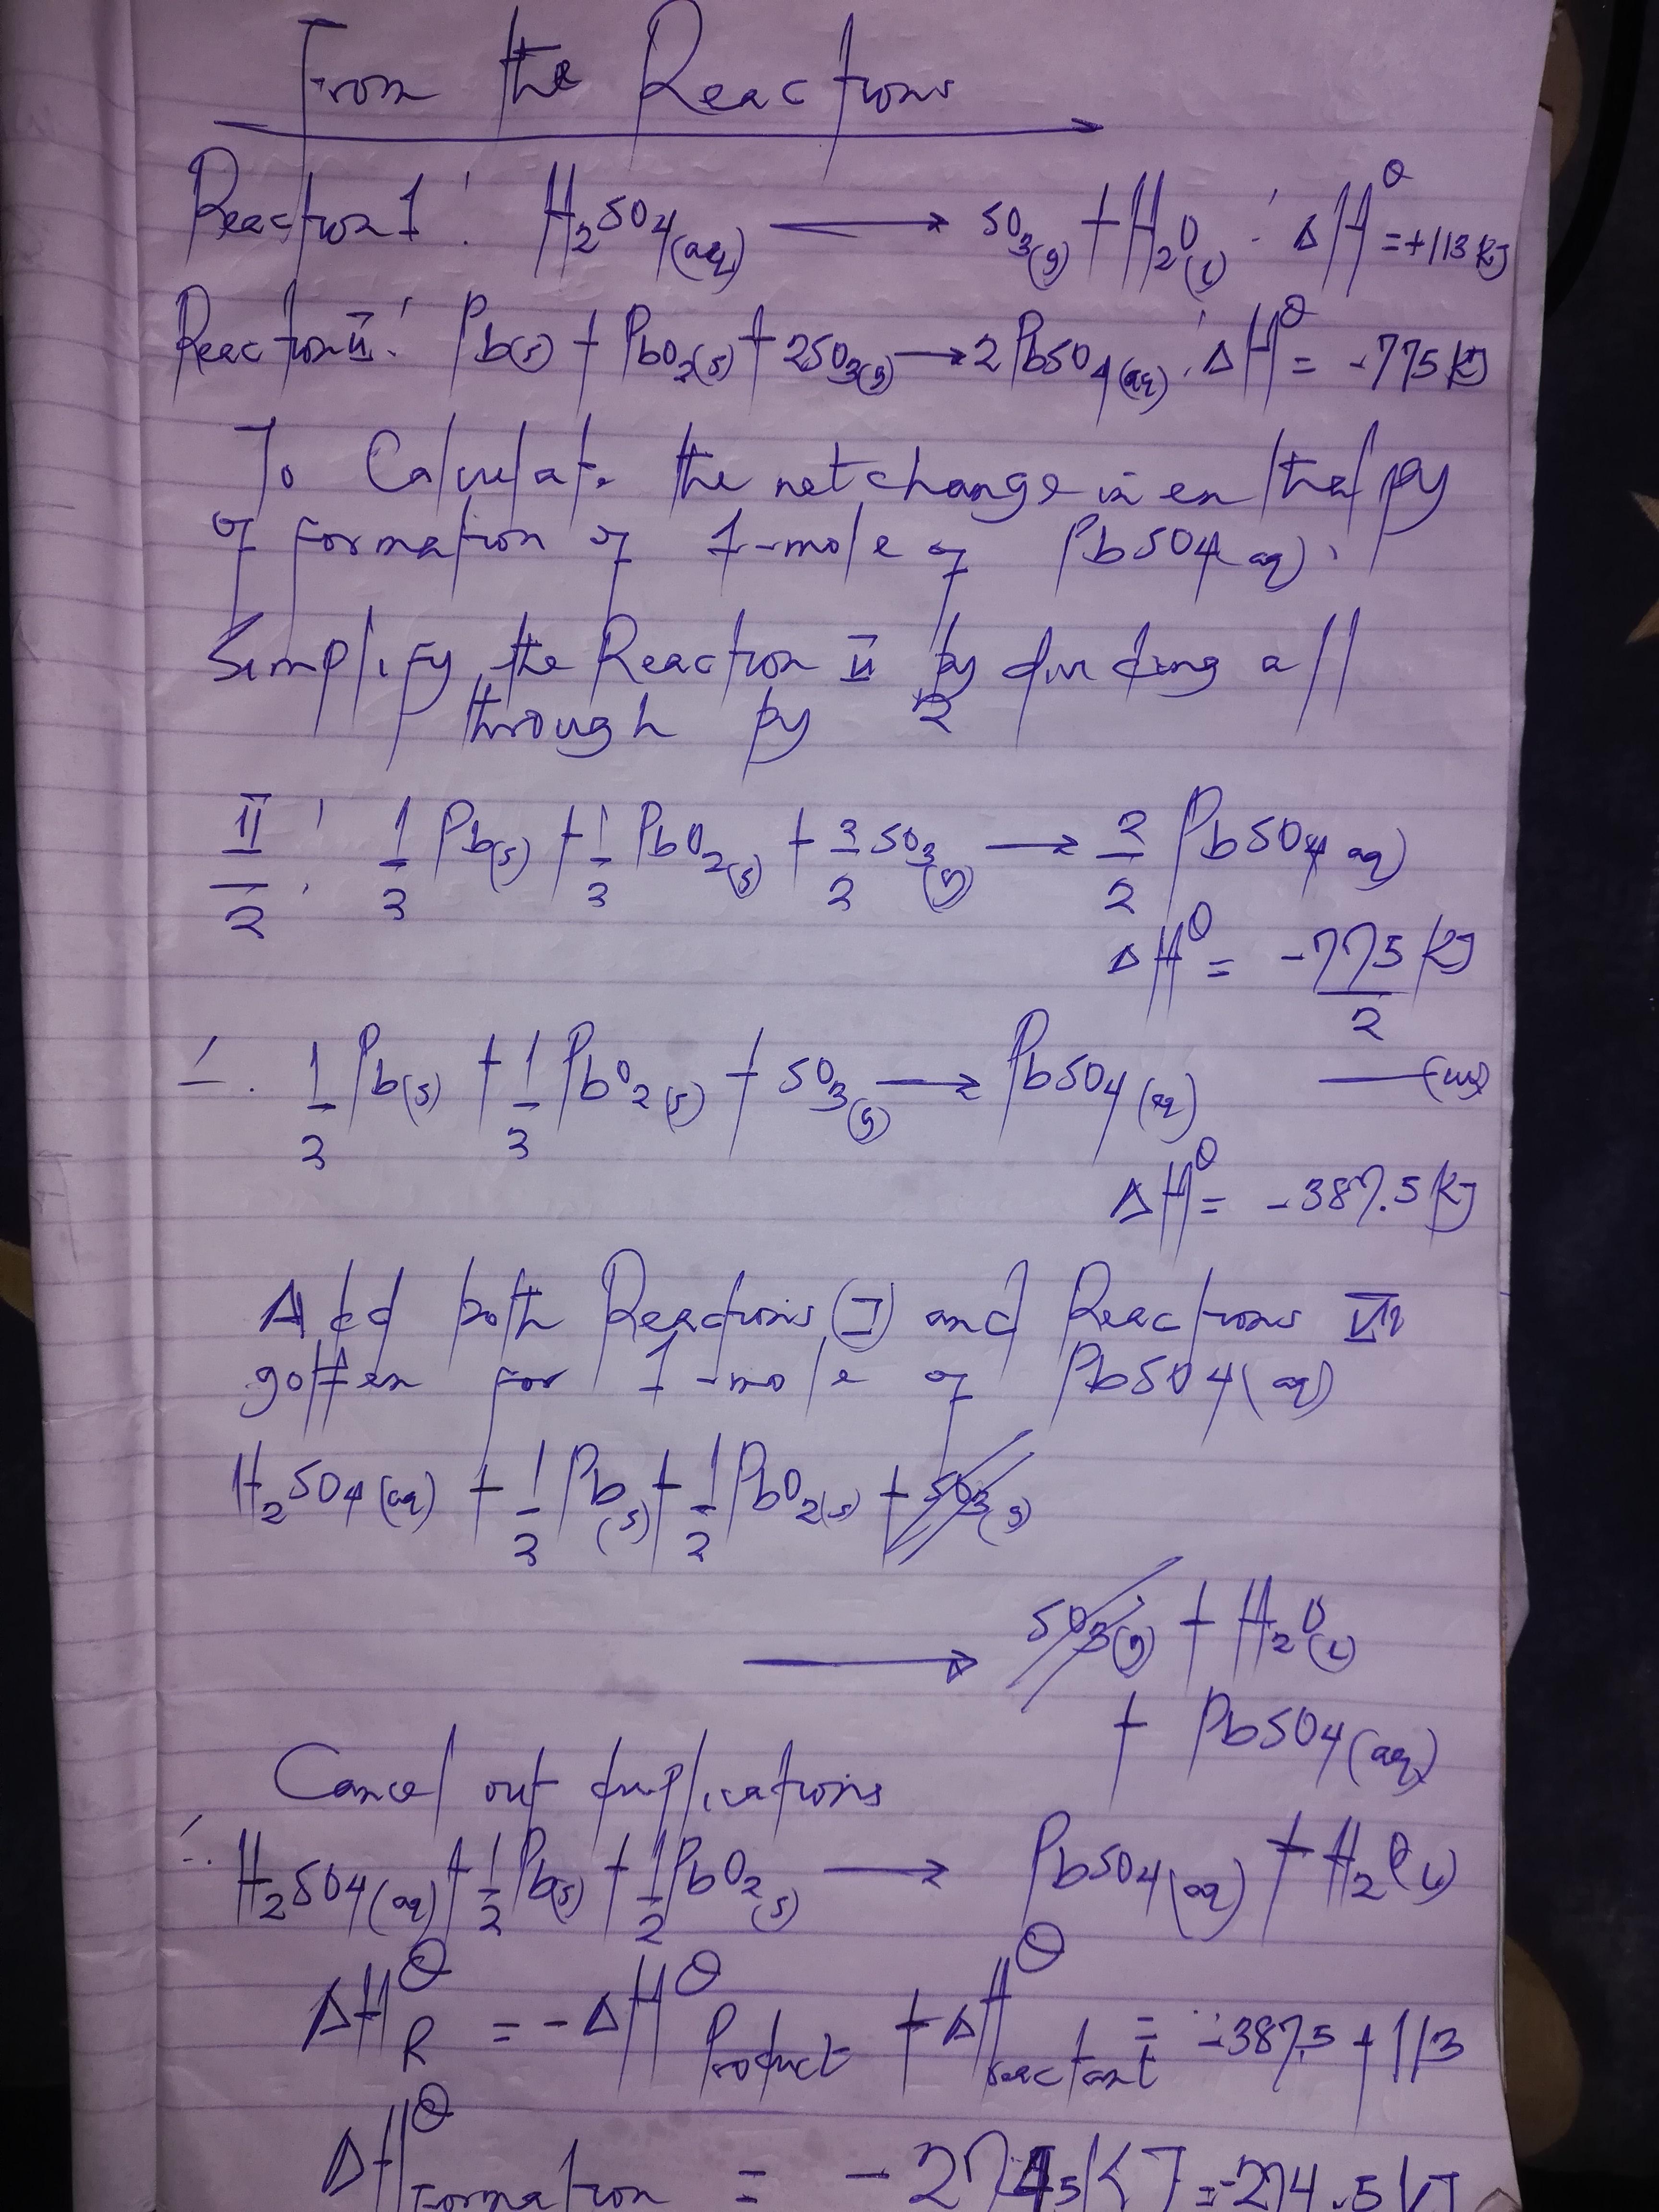 From the Reactions
Reaction I: H₂SO₄(aq) ⟶ SO₃(g) + H₂O(l) : ΔH^θ = +113 KJ
Reaction II: Pb(s) + PbO₂(s) + 2SO₃(g) ⟶ 2PbSO₄(aq) : ΔH^θ = -775 KJ
To Calculate the net change in enthalpy
of formation of 1-mole of PbSO₄(aq).
Simplify the Reaction II by dividing all
through by 2
II/2 : 1/2 Pb(s) + 1/2 PbO₂(s) + 2/2 SO₃(g) ⟶ 2/2 PbSO₄ aq)
ΔH^θ = -775/2 KJ
∴ 1/2 Pb(s) + 1/2 PbO₂(s) + SO₃(g) ⟶ PbSO₄(aq) —(iii)
ΔH^θ = -387.5 KJ
Add both Reactions (I) and Reactions III
gotten for 1-mole of PbSO₄(aq)
H₂SO₄(aq) + 1/2 Pb(s) + 1/2 PbO₂(s) + SO₃(g)
⟶ SO₃(g) + H₂O(l)
+ PbSO₄(aq)
Cancel out duplications
∴ H₂SO₄(aq) + 1/2 Pb(s) + 1/2 PbO₂(s) ⟶ PbSO₄(aq) + H₂O(l)
ΔH^θ R = -ΔH^θ Product + ΔH^θ reactant = -387.5 + 113
ΔH^θ Formation = -274.5 KJ = -274.5 KJ